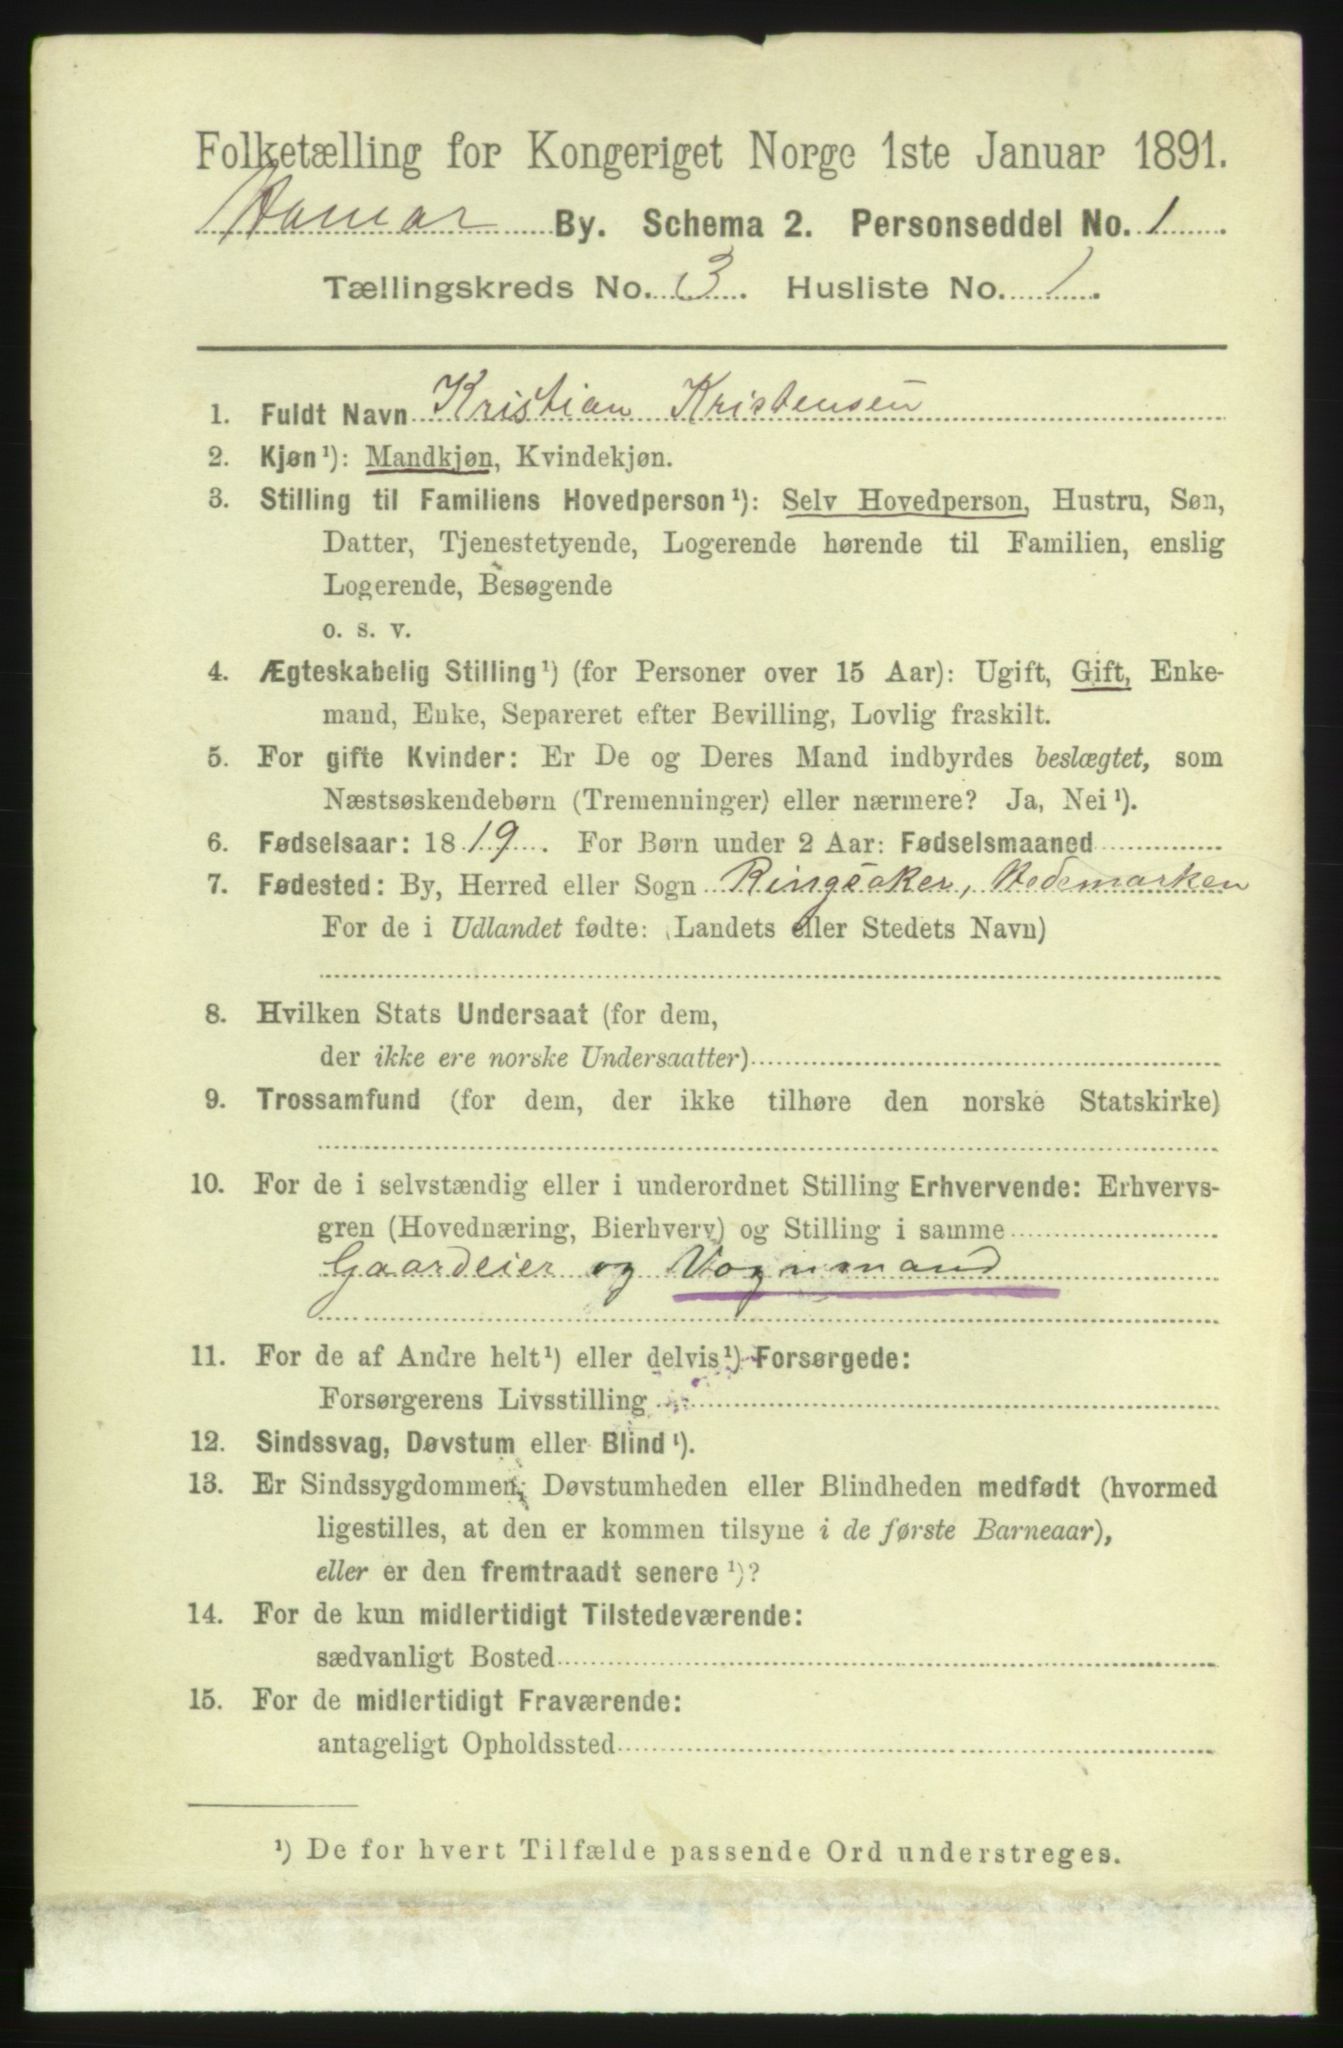 Folketælling for Kongeriget Norge 1ste Januar 1891.
Hamar By. Schema 2. Personseddel No. 1
Tællingskreds No. 3. Husliste No. 1.
1. Fuldt Navn Kristian Kristensen
2. Kjøn¹): Mandkjøn, Kvindekjøn.
3. Stilling til Familiens Hovedperson¹): Selv Hovedperson, Hustru, Søn,
Datter, Tjenestetyende, Logerende hørende til Familien, enslig
Logerende, Besøgende
o. s. v.
4. Ægteskabelig Stilling¹) (for Personer over 15 Aar): Ugift, Gift, Enke-
mand, Enke, Separeret efter Bevilling, Lovlig fraskilt.
5. For gifte Kvinder: Er De og Deres Mand indbyrdes beslægtet, som
Næstsøskendebørn (Tremenninger) eller nærmere? Ja, Nei¹).
6. Fødselsaar: 1819. For Børn under 2 Aar: Fødselsmaaned
7. Fødested: By, Herred eller Sogn Ringsaker, Hedemarken
For de i Udlandet fødte: (Landets eller Stedets Navn)
8. Hvilken Stats Undersaat (for dem,
der ikke ere norske Undersaatter)
9. Trossamfund (for dem, der ikke tilhøre den norske Statskirke)
10. For de i selvstændig eller i underordnet Stilling Erhvervende: Erhvervs-
gren (Hovednæring, Bierhverv) og Stilling i samme
Gaardeier og Vognmand
11. For de af Andre helt¹) eller delvis¹) Forsørgede:
Forsørgerens Livsstilling
12. Sindssvag, Døvstum eller Blind¹).
13. Er Sindssygdommen, Døvstumheden eller Blindheden medfødt (hvormed
ligestilles, at den er kommen tilsyne i de første Barneaar),
eller er den fremtraadt senere¹)?
14. For de kun midlertidigt Tilstedeværende:
sædvanligt Bosted
15. For de midlertidigt Fraværende:
antageligt Opholdssted
¹) De for hvert Tilfælde passende Ord understreges.